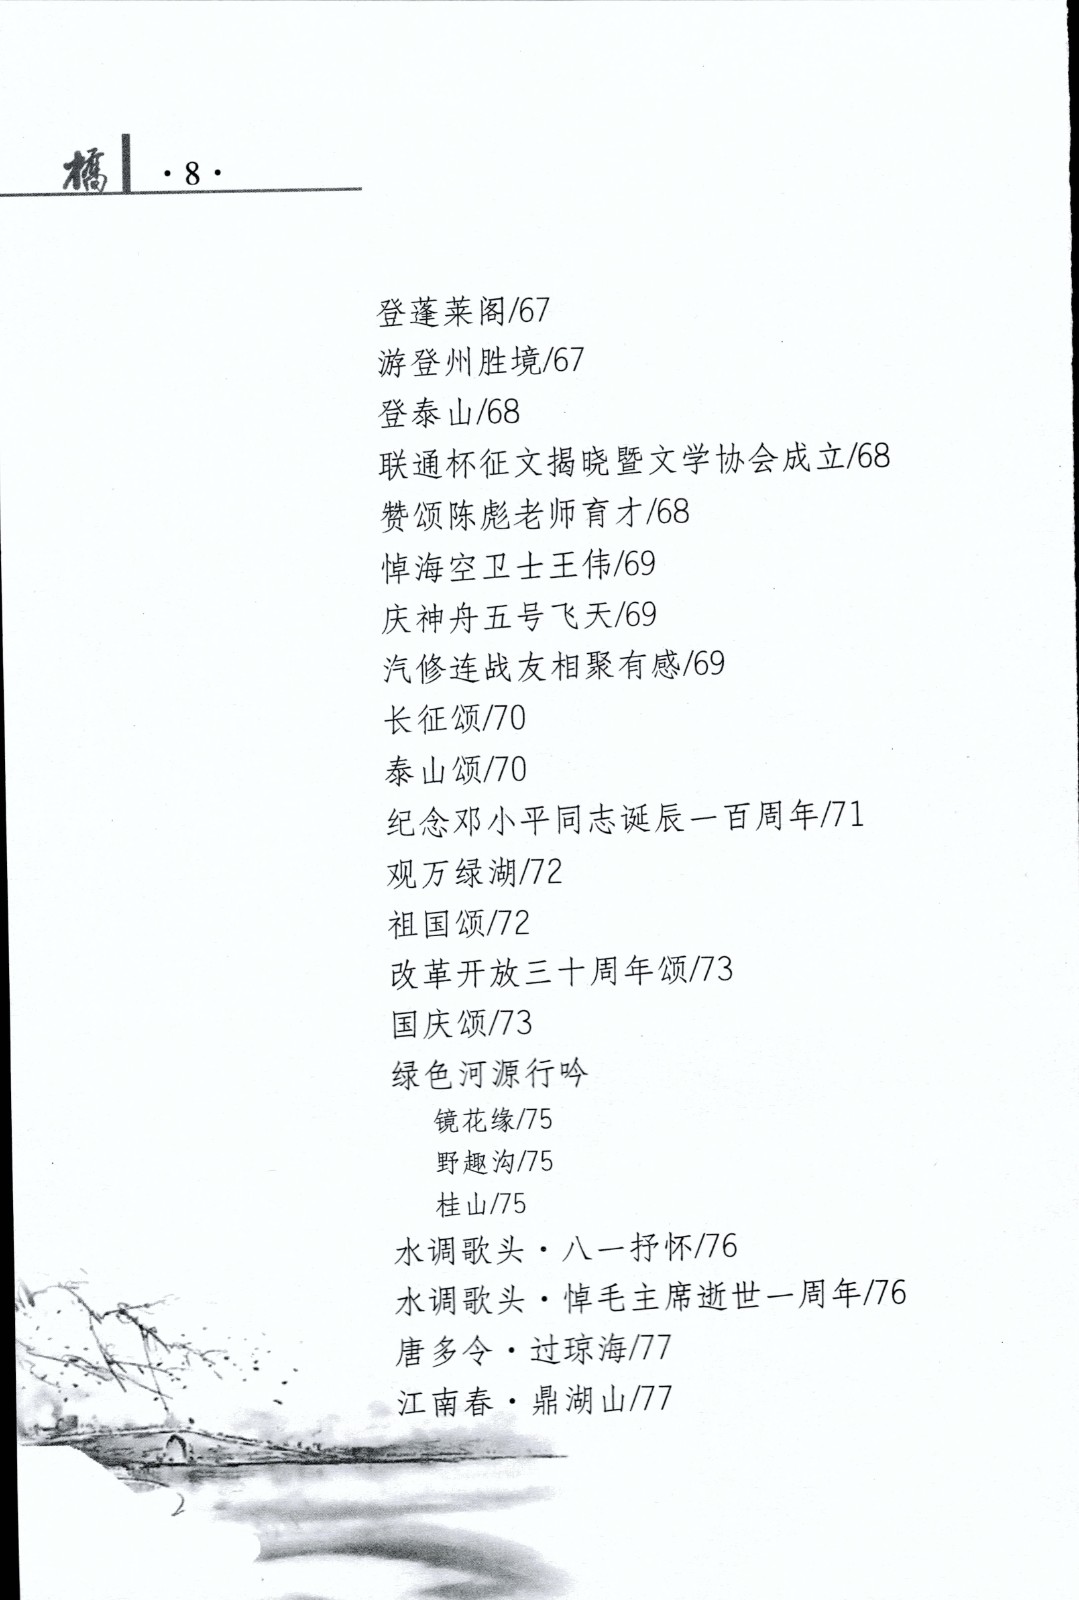 橋 ·8·
登蓬莱阁/67
游登州胜境/67
登泰山/68
联通杯征文揭晓暨文学协会成立/68
赞颂陈彪老师育才/68
悼海空卫士王伟/69
庆神舟五号飞天/69
汽修连战友相聚有感/69
长征颂/70
泰山颂/70
纪念邓小平同志诞辰一百周年/71
观万绿湖/72
祖国颂/72
改革开放三十周年颂/73
国庆颂/73
绿色河源行吟
镜花缘/75
野趣沟/75
桂山/75
水调歌头·八一抒怀/76
水调歌头·悼毛主席逝世一周年/76
唐多令·过琼海/77
江南春·鼎湖山/77
2